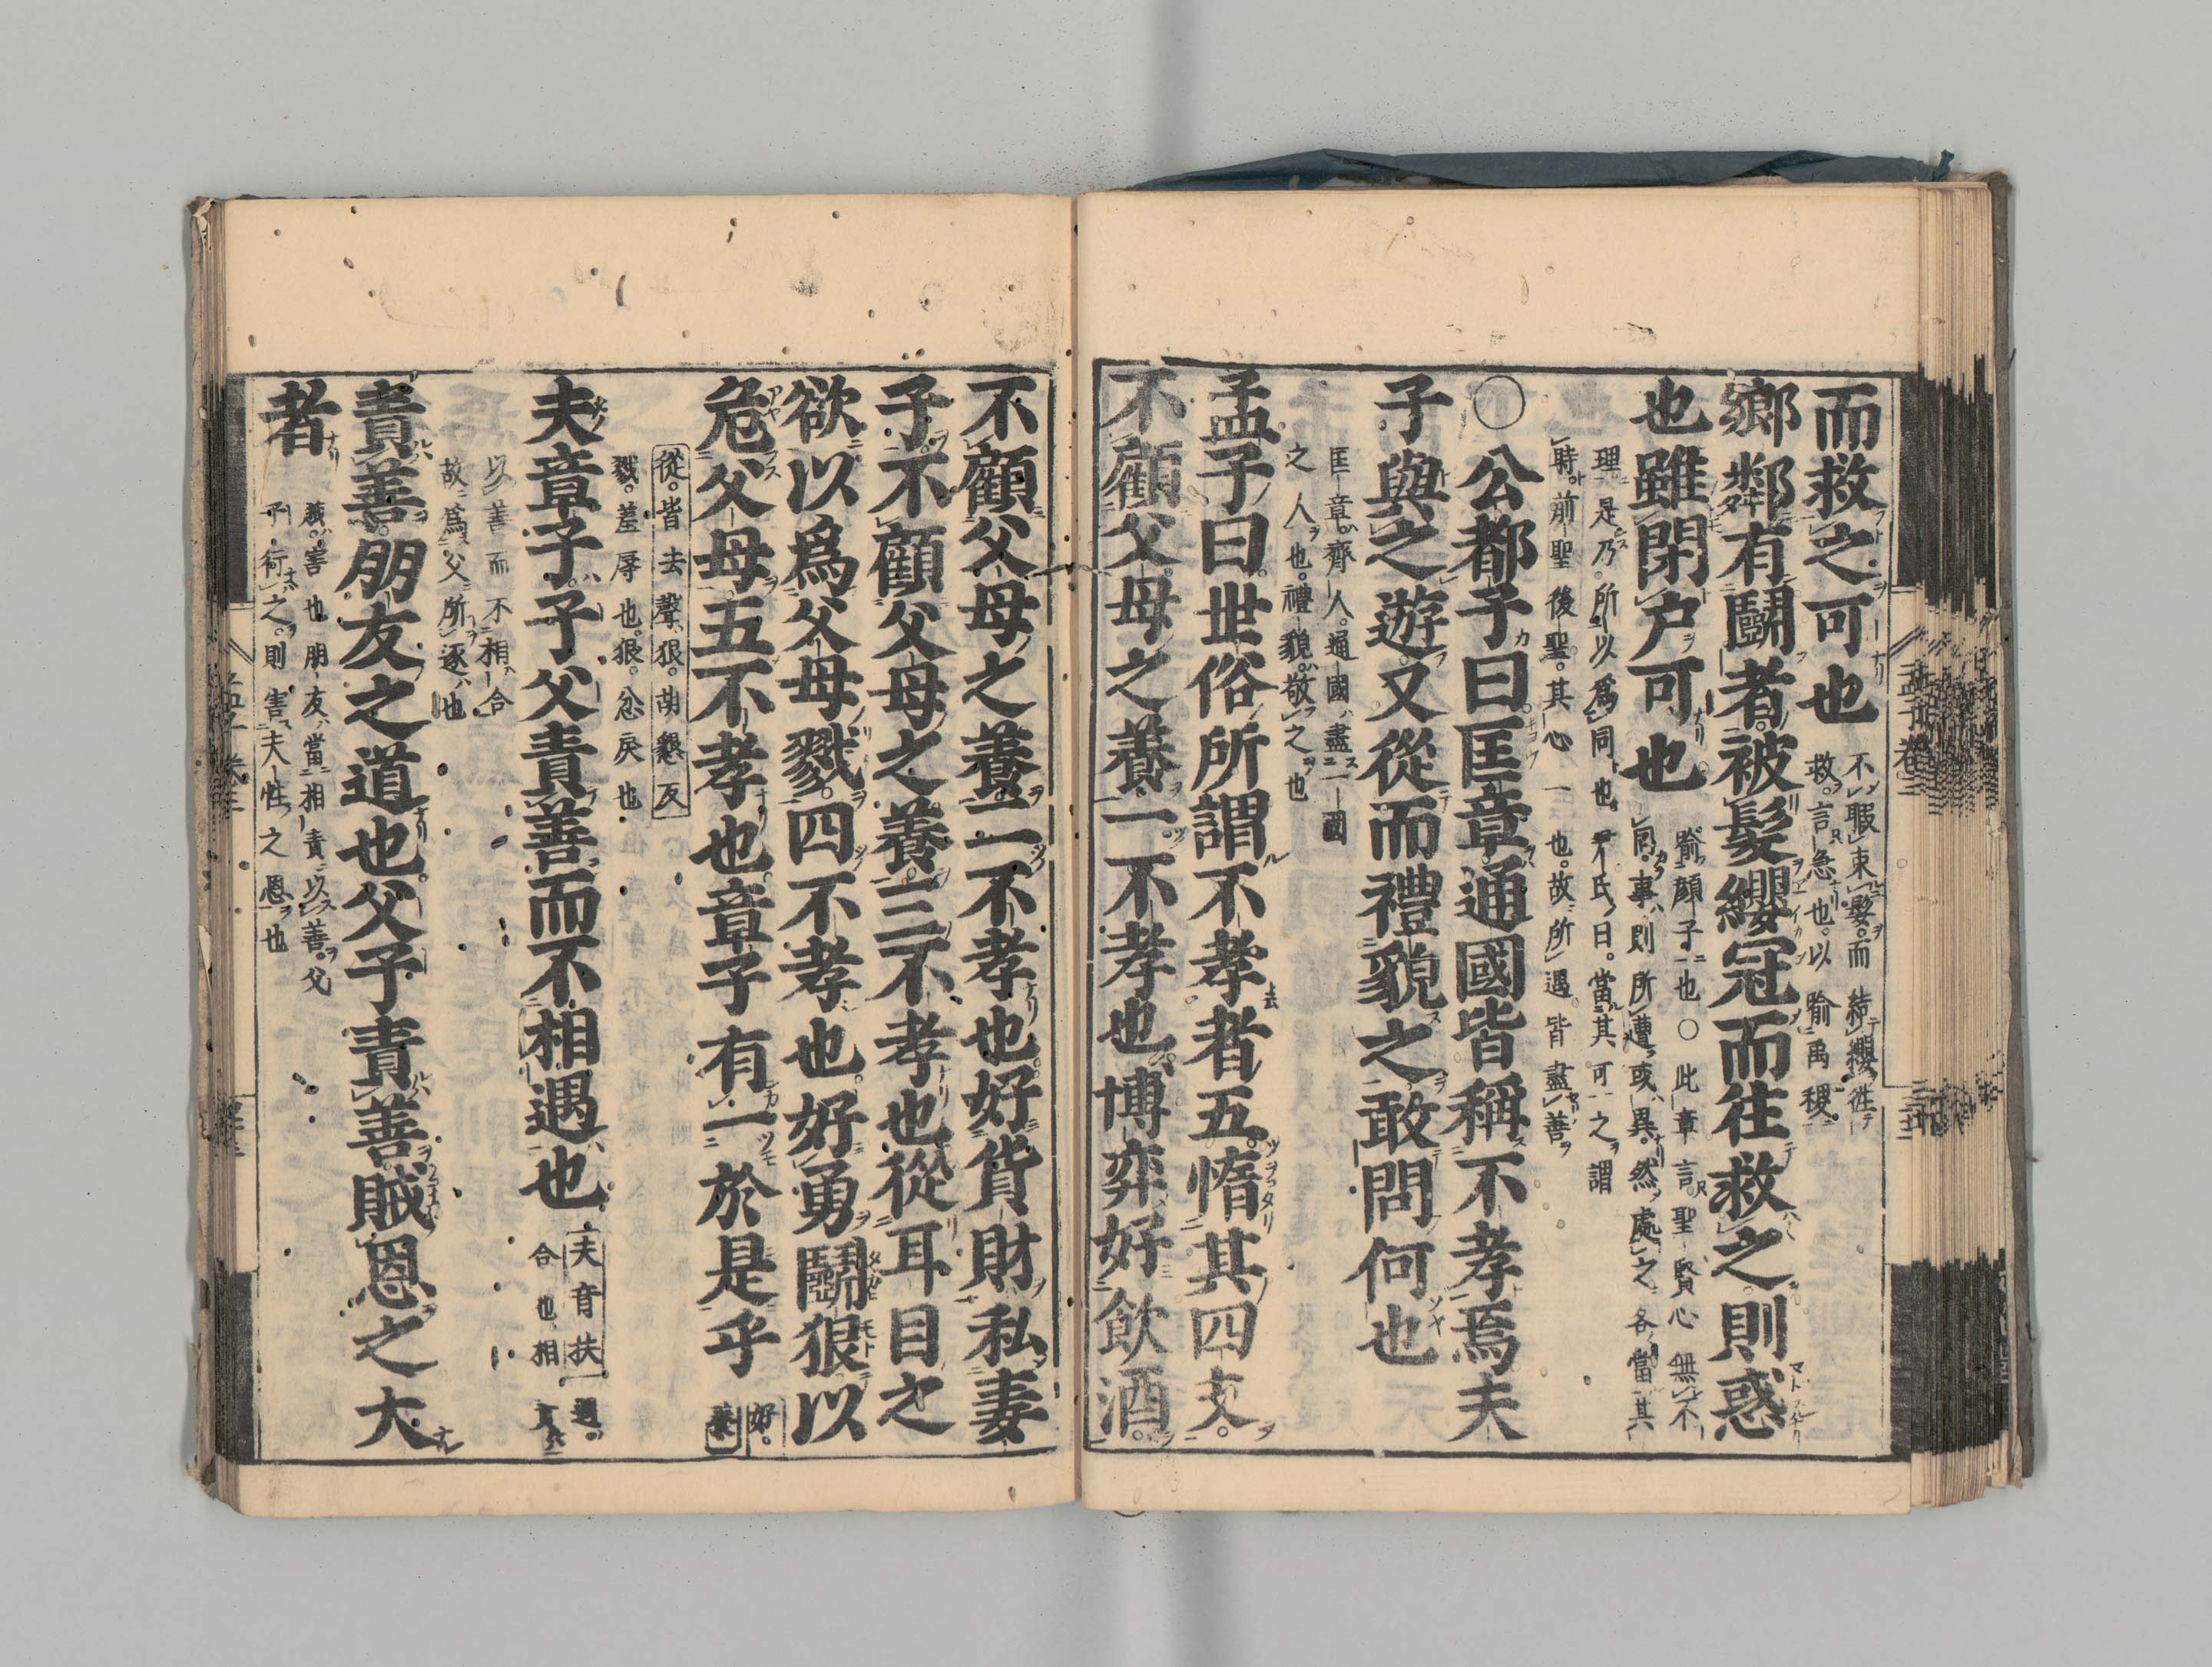 而救之可也 不暇束髮而結纓徃
救言急也以喻禹稷
鄉鄰有鬭者被髮纓冠而往救之則惑
也雖閉户可也 喻顔子也○此章言聖賢心無不
同事則所遭或異然處之各當其
理是乃所以爲同也尹氏曰當其可之謂
時前聖後聖其心一也故所遇皆盡善
○公都子曰匡章通國皆稱不孝焉夫
子與之遊又從而禮貌之敢問何也
匡章齊人通國盡一國
之人也禮貌敬之也
孟子曰世俗所謂不孝者五惰其四支
不顧父母之養一不孝也博弈好飲酒
不顧父母之養二不孝也好貨財私妻
子不顧父母之養三不孝也從耳目之
欲以爲父母戮四不孝也好勇鬭狠以
危父母五不孝也章子有一於是乎 好
從皆去聲狠胡懇反
戮羞辱也狠忿戾也
夫章子子父責善而不相遇也 夫音扶遇
合也相
以善而不相合
故爲父所逐也
責善朋友之道也父子責善賊恩之大
者 賊害也朋友當相責以善父
子行之則害夫性之恩也